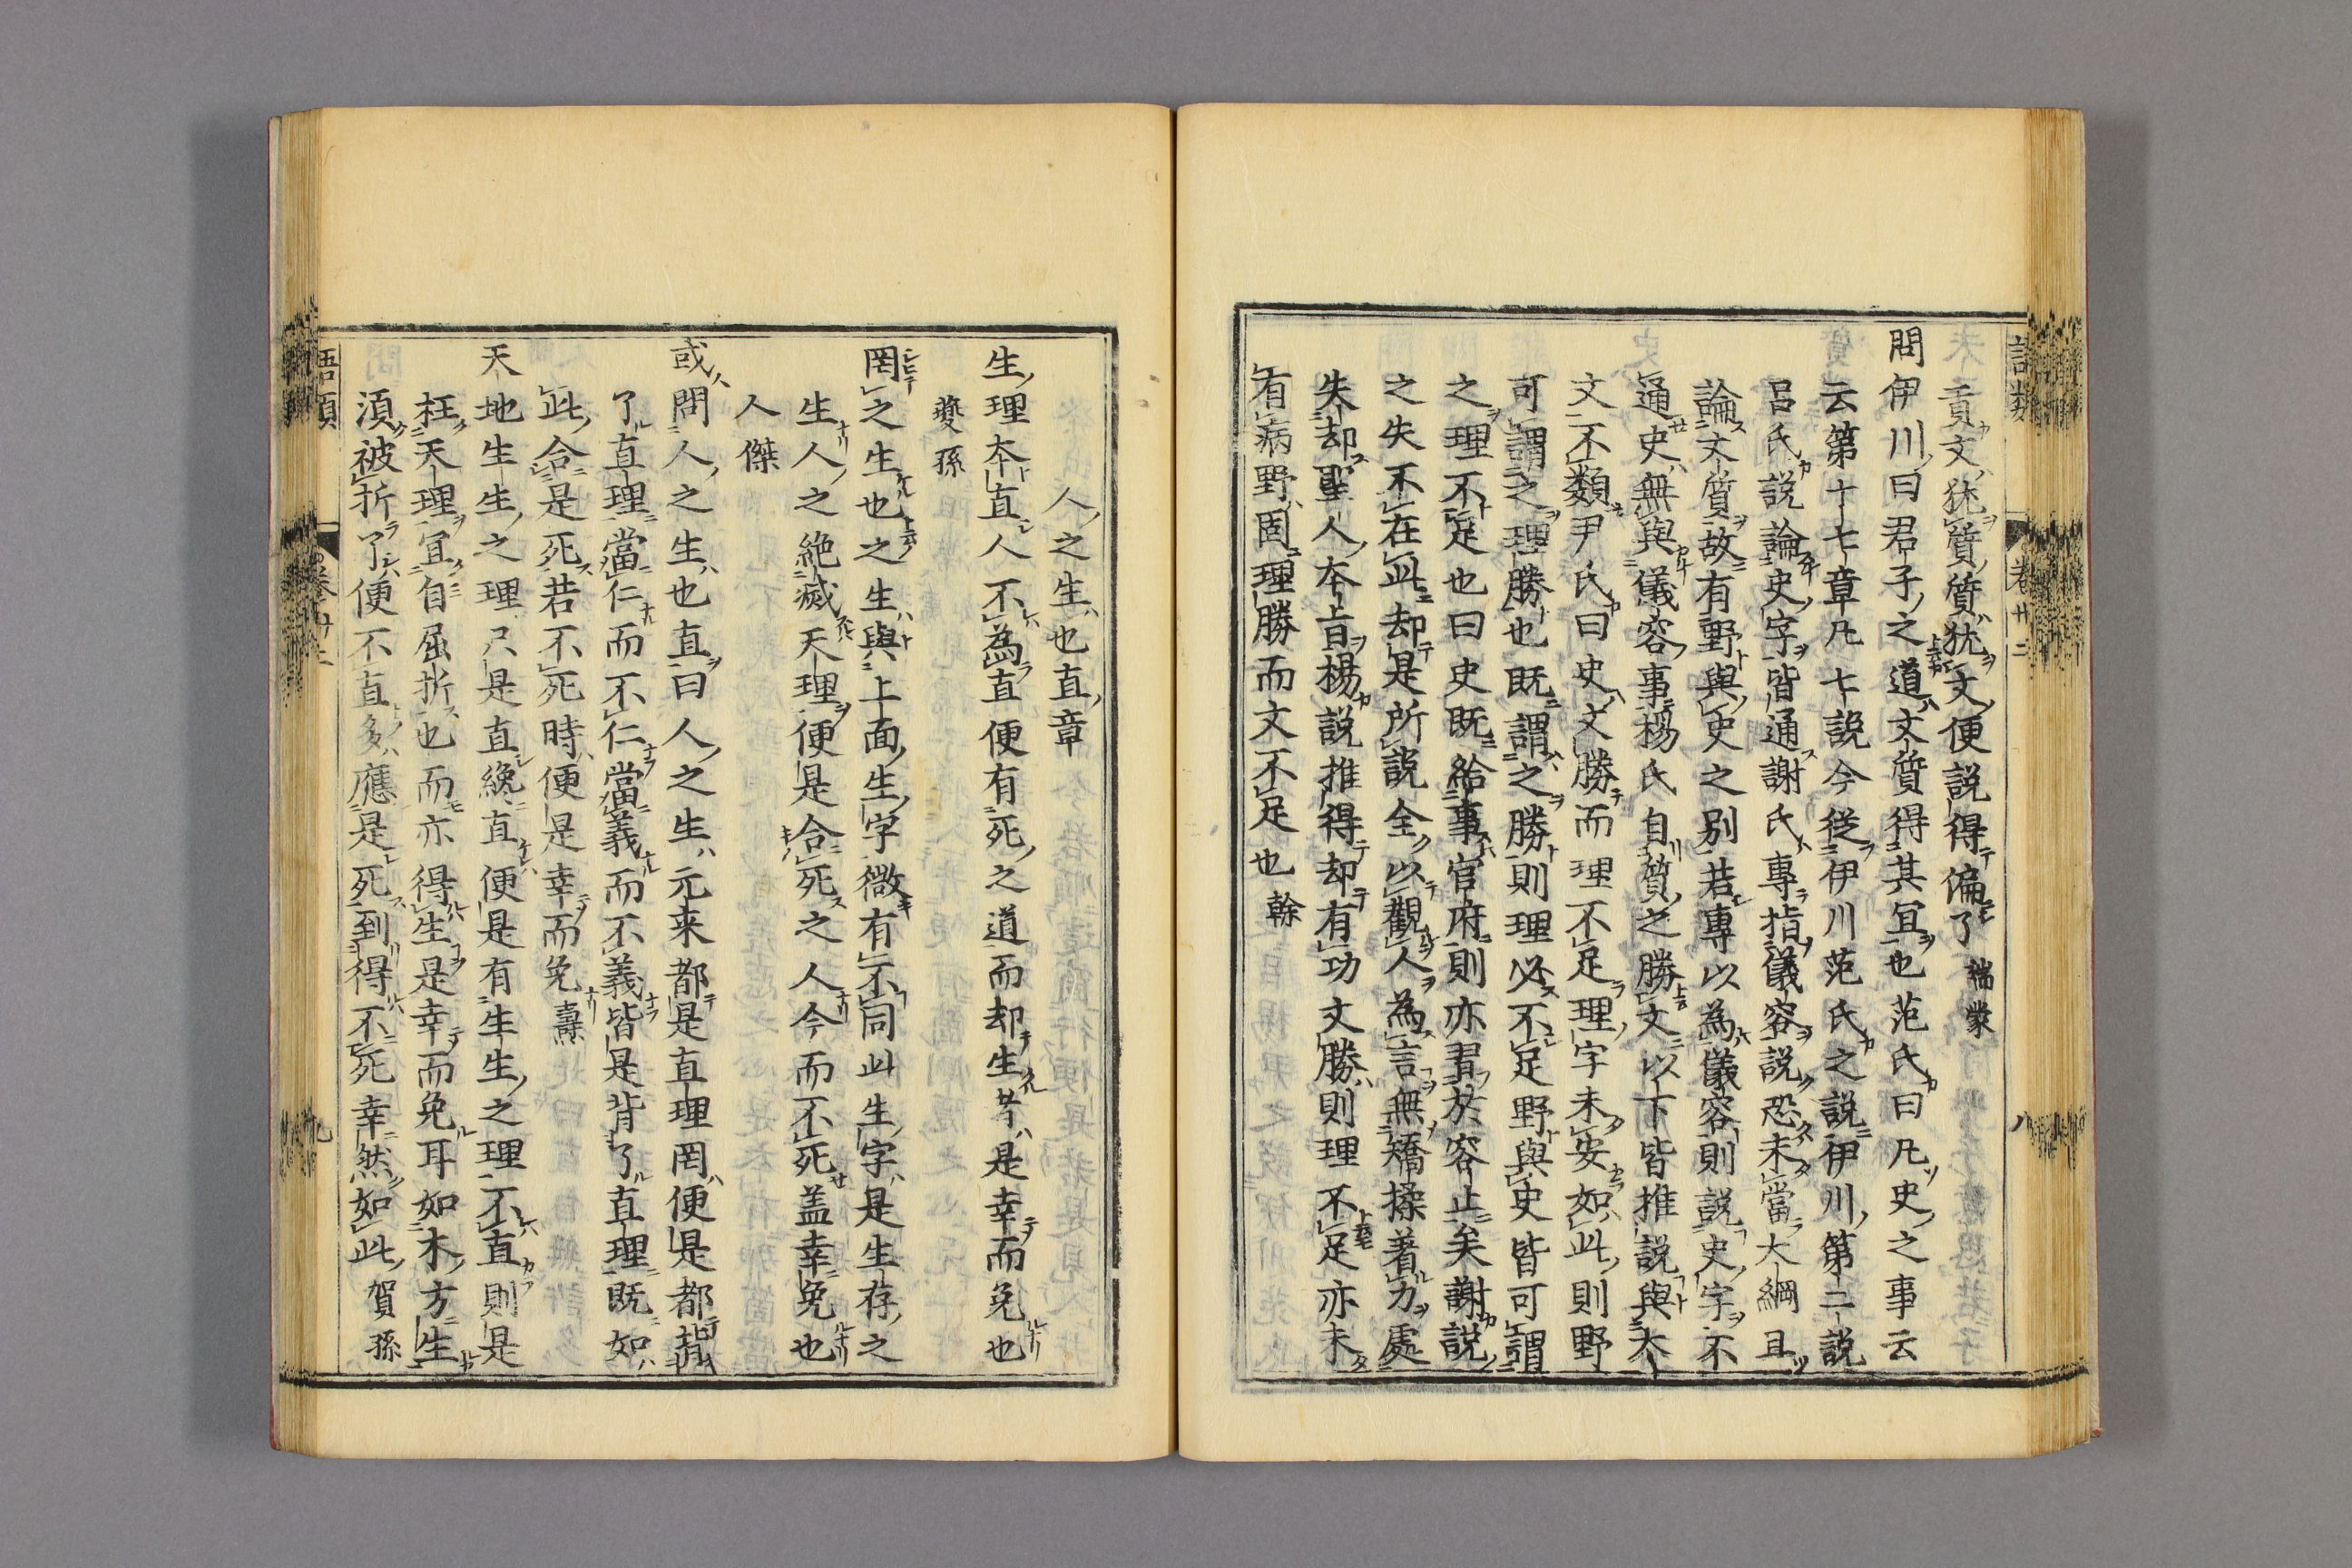 語類 卷廿二 八
貢文猶質質猶文便説得偏了 端蒙
問伊川曰君子之道文質得其宜也范氏曰凡史之事云
云第十七章凡七説今從伊川范氏之説伊川第二説
呂氏説論史字皆通謝氏專指儀容説恐未當大綱且
論文質故有野與史之别若專以為儀容則説史字不
通史無與儀容事楊氏自質之勝文以下皆推説與本
文不類尹氏曰史文勝而理不足理字未安如此則野
可謂之理勝也既謂之勝則理必不足野與史皆可謂
之理不足也曰史既給事官府則亦習於容止矣謝説
之失不在此却是所説全以觀人為言無矯揉著力處
失却聖人本旨楊説推得却有功文勝則理不足亦未
有病野固理勝而文不足也 榦
人之生也直章
生理本直人不為直便有死之道而却生者是幸而免也
夔孫
罔之生也之生與上面生字微有不同此生字是生存之
生人之絶滅天理便是合死之人今而不死盖幸免也
人傑
或問人之生也直曰人之生元来都是直理罔便是都背
了直理當仁而不仁當義而不義皆是背了直理既如
此合是死若不死時便是幸而免 燾
天地生生之理只是直纔直便是有生生之理不直則是
枉天理宜自屈折也而亦得生是幸而免耳如木方生
須被折了便不直多應是死到得不死幸然如此 賀孫
語類 卷廿二 九